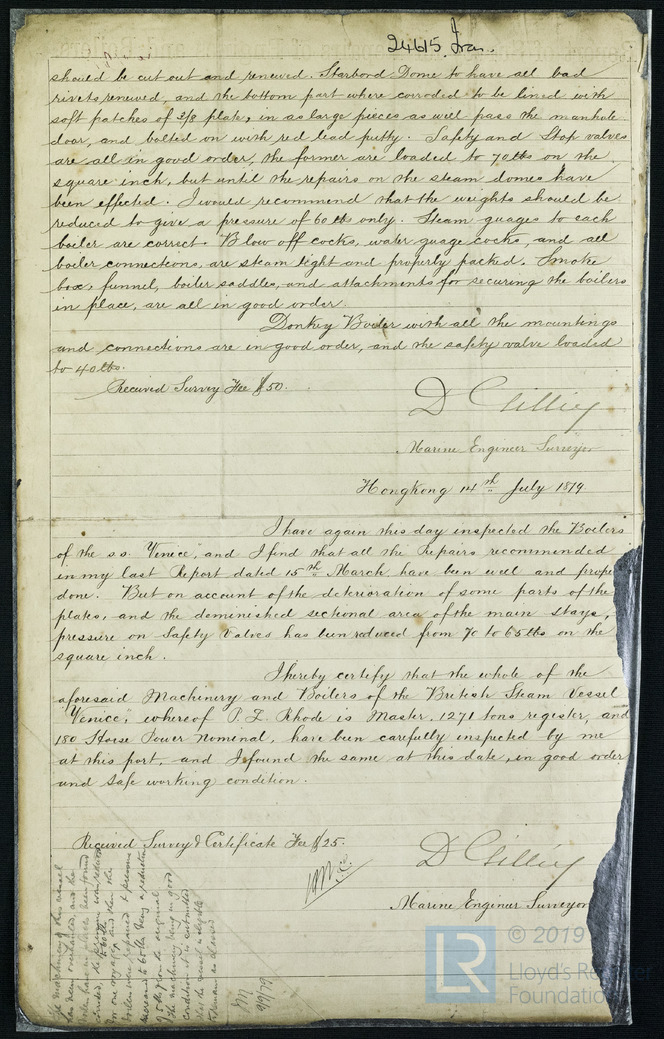 24615 Iron.
should be cut out and renewed. Starbord Dome to have all bad
rivets renewed, and the bottom part where corroded to be lined with
soft patches of 3/8 plate, in as large pieces as well pass the manhole
door, and bolted on with red lead putty. Safety and Stop valves
are all in good order, the former are loaded to 70 lbs on the
square inch, but until the repairs on the steam domes have
been effected. I would recommend that the weights should be
reduced to give a pressure of 60 lb only. Steam guages to each
boiler are correct. Blow off cocks, water guage cocks, and all
boiler connections, are steam tight and properly packed. Smoke
box, funnel, boiler saddles, and attachments for securing the boilers
in place, are all in good order.
Donkey Boiler with all the mountings
and connections are in good order, and the safety valve loaded
to 40 lbs.
Received Survey Fee $50.
D Gillies
Marine Engineer Surveyor
Hongkong 14th July 1879
I have again this day inspected the Boilers
of the s.s. Venice, and I find that all the Repairs recommended
in my last Report dated 15th March, have been well and prope
done. But on account of the deterioration of some parts of the
plates, and the deminished sectional area of the main stays,
pressure on Safety Valves has been reduced from 70 to 65 lbs on the
square inch.
I hereby certify that the whole of the
aforesaid Machinery and Boilers of the British Steam Vessel
"Venice," whereof P. L. Rhode is Master, 1271 tons register, and
180 Horse Power Nominal, have been carefully inspected by me
at this port, and I found the same at this date, in good order
and safe working condition.
Received Survey & Certificate Fee $25.
D Gillies
Marine Engineer Surveyor
The machinery of this vessel
has been overhauled, and the
boilers having been found
for one voyage and then the
boilers were repaired & pressure
increased to 65 lbs being a reduction
of 5 lbs from the original
The machinery being in good
condition it is submitted
that this vessel is eligible
9/9/79
LR
© 2019
Lloyd's Register
Foundation